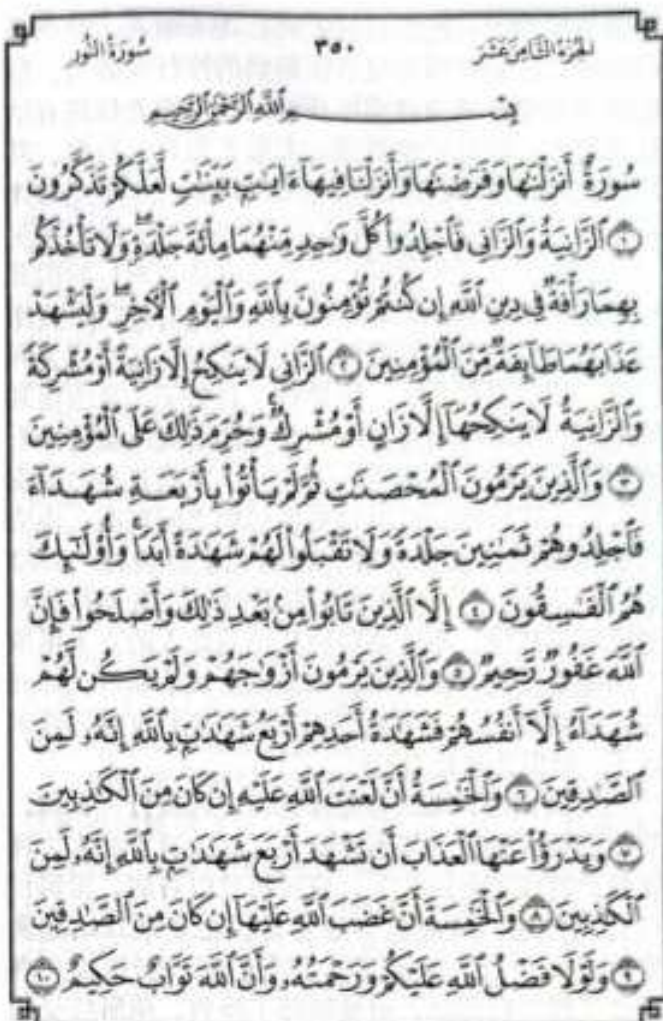 الجزء الثامن عشر ٣٥٠ سورة النور
بِسْمِ اللَّهِ الرَّحْمَٰنِ الرَّحِيمِ
سُورَةٌ أَنزَلْنَٰهَا وَفَرَضْنَٰهَا وَأَنزَلْنَا فِيهَآ ءَايَٰتٍۭ بَيِّنَٰتٍ لَّعَلَّكُمْ تَذَكَّرُونَ
١ ٱلزَّانِيَةُ وَٱلزَّانِى فَٱجْلِدُوا۟ كُلَّ وَٰحِدٍ مِّنْهُمَا مِا۟ئَةَ جَلْدَةٍ ۖ وَلَا تَأْخُذْكُم
بِهِمَا رَأْفَةٌ فِى دِينِ ٱللَّهِ إِن كُنتُمْ تُؤْمِنُونَ بِٱللَّهِ وَٱلْيَوْمِ ٱلْءَاخِرِ ۖ وَلْيَشْهَدْ
عَذَابَهُمَا طَآئِفَةٌ مِّنَ ٱلْمُؤْمِنِينَ ٢ ٱلزَّانِى لَا يَنكِحُ إِلَّا زَانِيَةً أَوْ مُشْرِكَةً
وَٱلزَّانِيَةُ لَا يَنكِحُهَآ إِلَّا زَانٍ أَوْ مُشْرِكٌ ۚ وَحُرِّمَ ذَٰلِكَ عَلَى ٱلْمُؤْمِنِينَ
٣ وَٱلَّذِينَ يَرْمُونَ ٱلْمُحْصَنَٰتِ ثُمَّ لَمْ يَأْتُوا۟ بِأَرْبَعَةِ شُهَدَآءَ
فَٱجْلِدُوهُمْ ثَمَٰنِينَ جَلْدَةً وَلَا تَقْبَلُوا۟ لَهُمْ شَهَٰدَةً أَبَدًا ۚ وَأُو۟لَٰٓئِكَ
هُمُ ٱلْفَٰسِقُونَ ٤ إِلَّا ٱلَّذِينَ تَابُوا۟ مِنۢ بَعْدِ ذَٰلِكَ وَأَصْلَحُوا۟ فَإِنَّ
ٱللَّهَ غَفُورٌ رَّحِيمٌ ٥ وَٱلَّذِينَ يَرْمُونَ أَزْوَٰجَهُمْ وَلَمْ يَكُن لَّهُمْ
شُهَدَآءُ إِلَّآ أَنفُسُهُمْ فَشَهَٰدَةُ أَحَدِهِمْ أَرْبَعُ شَهَٰدَٰتٍۭ بِٱللَّهِ إِنَّهُۥ لَمِنَ
ٱلصَّٰدِقِينَ ٦ وَٱلْخَٰمِسَةُ أَنَّ لَعْنَتَ ٱللَّهِ عَلَيْهِ إِن كَانَ مِنَ ٱلْكَٰذِبِينَ
٧ وَيَدْرَؤُا۟ عَنْهَا ٱلْعَذَابَ أَن تَشْهَدَ أَرْبَعَ شَهَٰدَٰتٍۭ بِٱللَّهِ إِنَّهُۥ لَمِنَ
ٱلْكَٰذِبِينَ ٨ وَٱلْخَٰمِسَةَ أَنَّ غَضَبَ ٱللَّهِ عَلَيْهَآ إِن كَانَ مِنَ ٱلصَّٰدِقِينَ
٩ وَلَوْلَا فَضْلُ ٱللَّهِ عَلَيْكُمْ وَرَحْمَتُهُۥ وَأَنَّ ٱللَّهَ تَوَّابٌ حَكِيمٌ ١٠